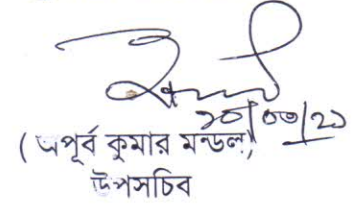 ২০/০৩/২১
(অপূর্ব কুমার মন্ডল)
উপসচিব